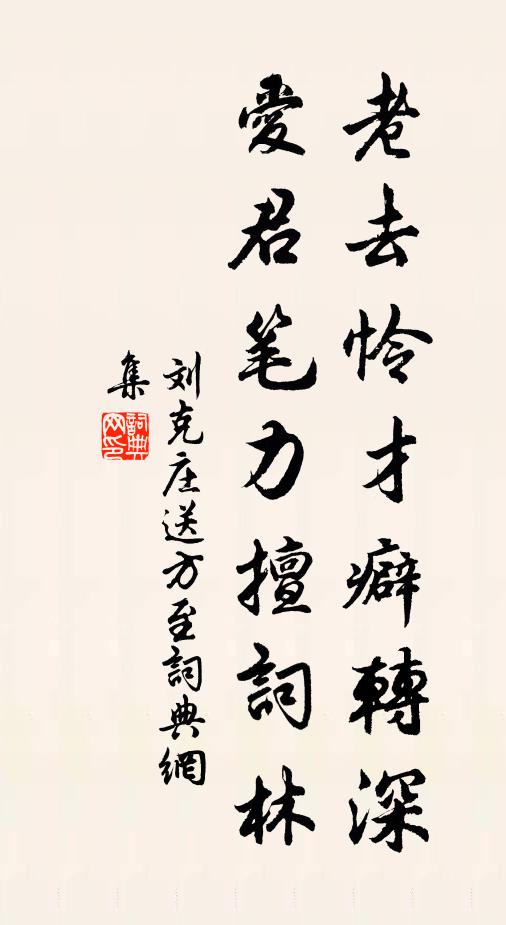 老去怜才癖轉深
愛君笔力擅詞林
刘克庄送方至詞典網
集
詞典
网印